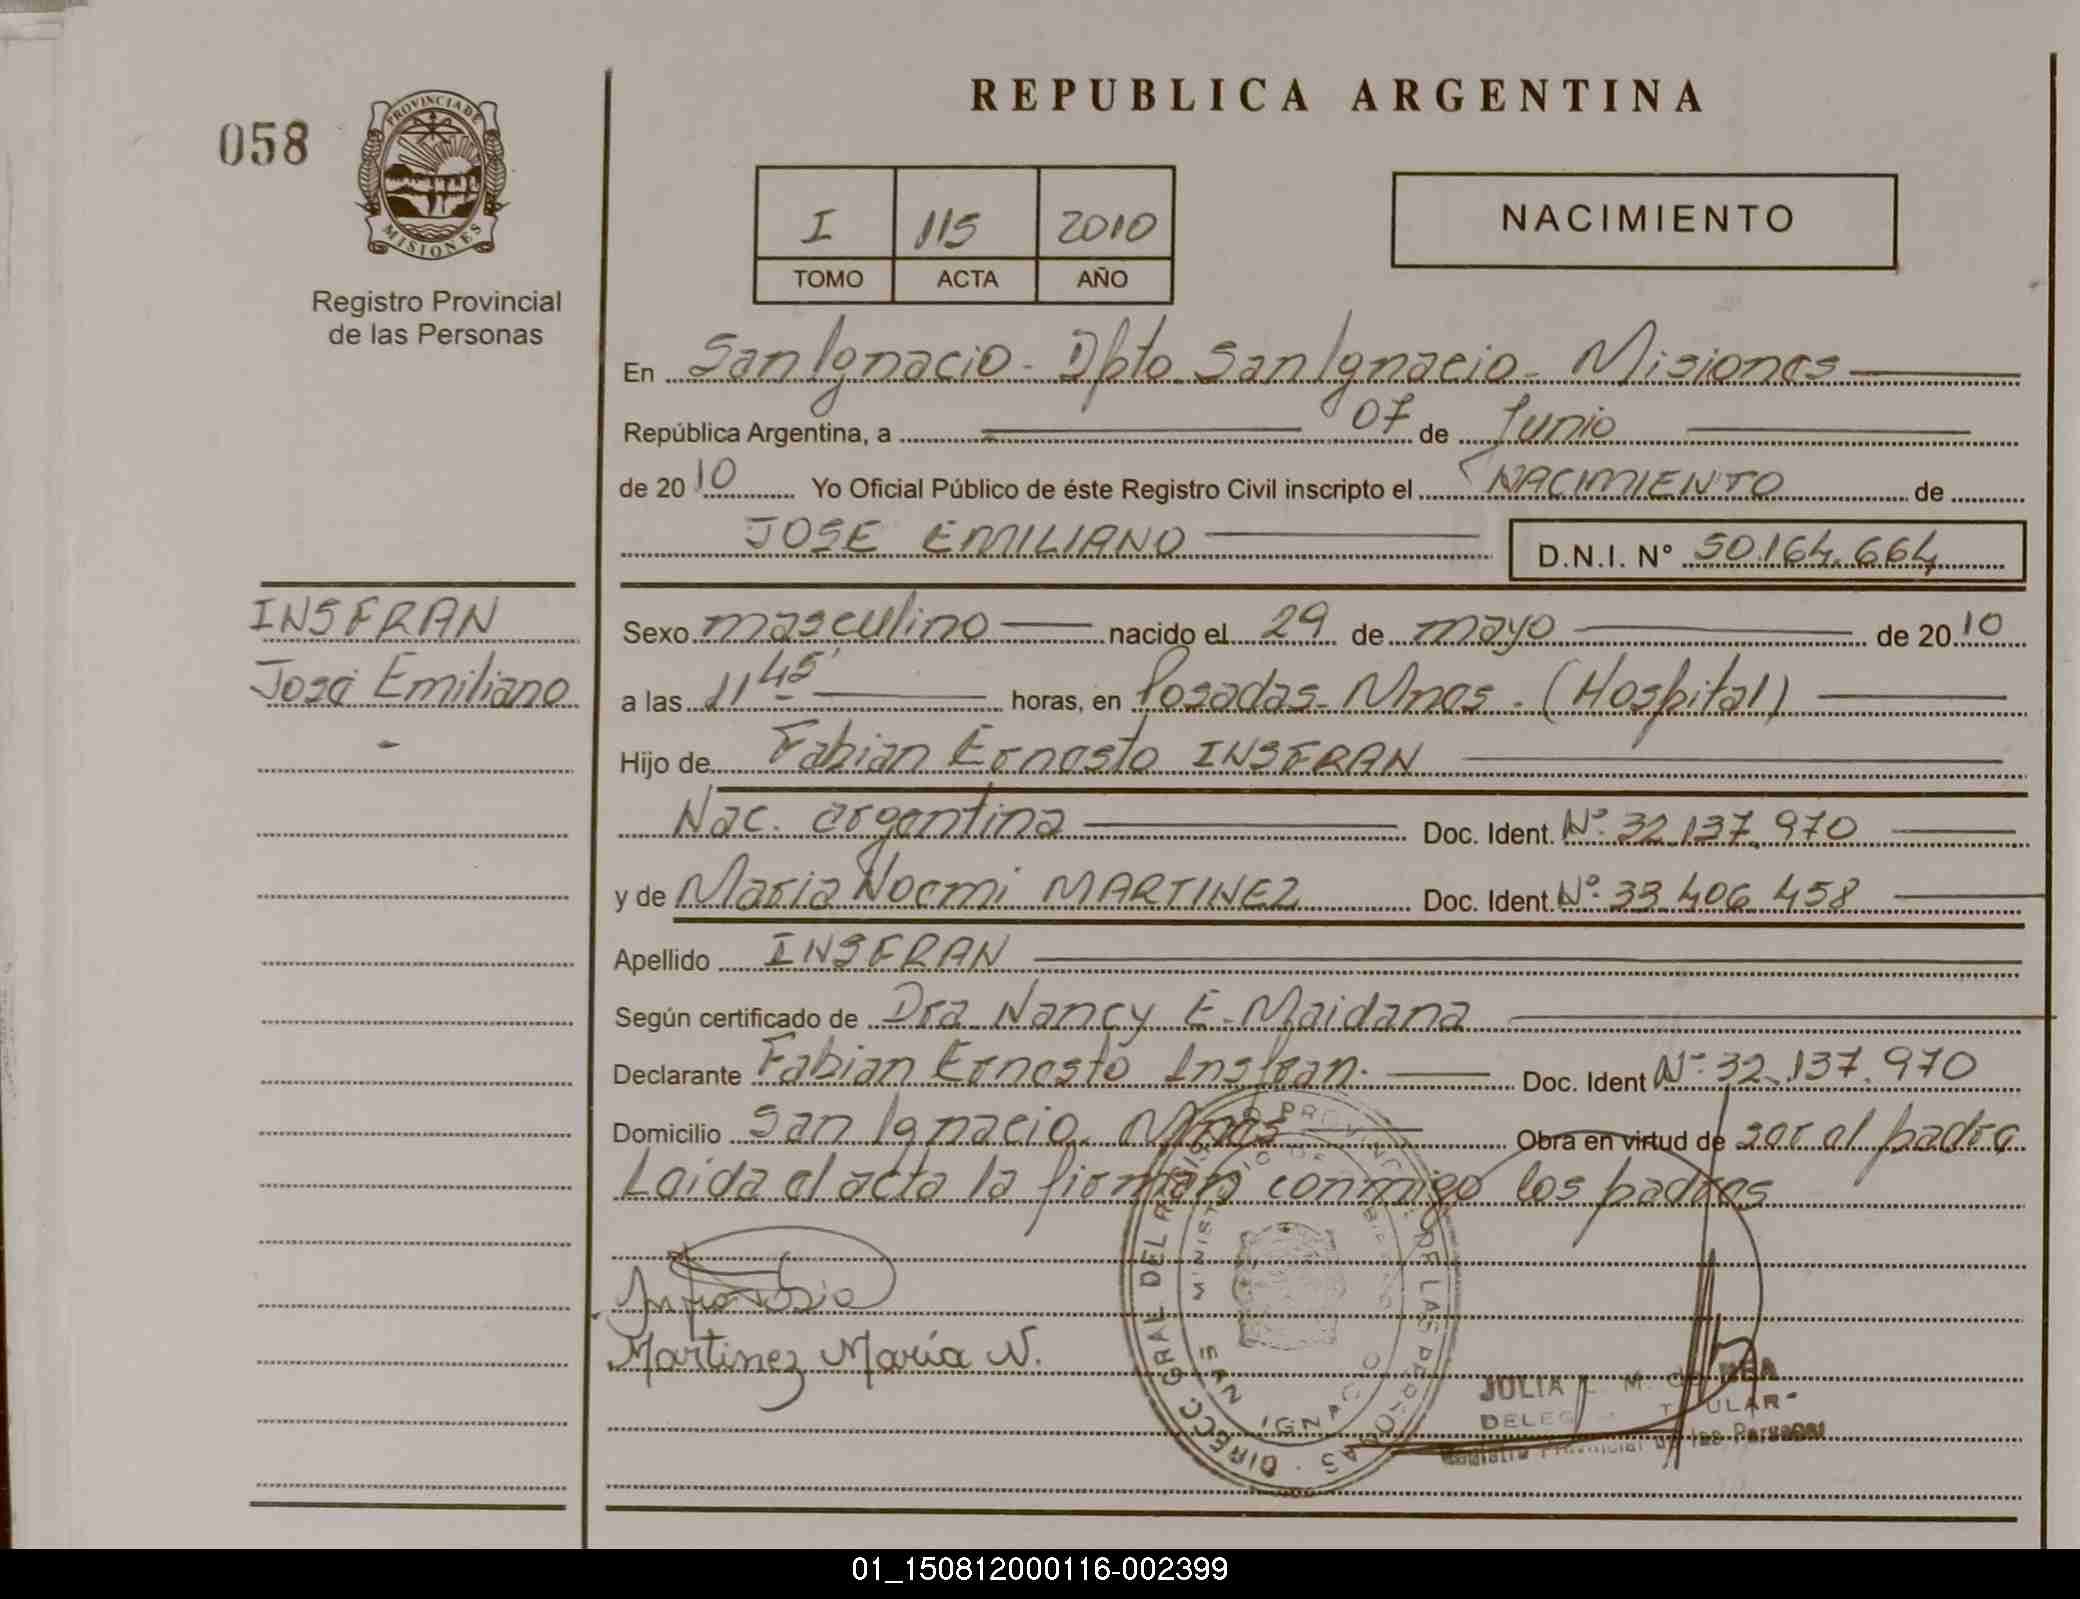 REPUBLICA ARGENTINA
058
PROVINCIA DE
MISIONES
Registro Provincial
de las Personas
I 115 2010
TOMO ACTA AÑO
NACIMIENTO
En San Ignacio - Dpto San Ignacio - Misiones
República Argentina, a 07 de Junio
de 2010 Yo Oficial Público de éste Registro Civil inscripto el NACIMIENTO de
JOSE EMILIANO D.N.I. N° 50.164.664
INSFRAN
José Emiliano
-
Sexo masculino nacido el 29 de mayo de 2010
a las 11 45' horas, en Posadas - Mnes. (Hospital)
Hijo de Fabian Ernesto INSFRAN
Nac. argentina Doc. Ident. Nº 32.137.970
y de Maria Noemi MARTINEZ Doc. Ident. Nº 33.406.458
Apellido INSFRAN
Según certificado de Dra Nancy E. Maidana
Declarante Fabian Ernesto Insfran. Doc. Ident Nº 32.137.970
Domicilio San Ignacio Mnes Obra en virtud de ser el padre
Leida el acta la firman conmigo los padres
Martinez María N.
DIRECC GRAL DEL REGISTRO PROVINCIAL DE LAS PERSONAS
MINISTERIO DE GOBIERNO
SAN IGNACIO
JULIA M. DE
DELEG TITULAR
Registro Provincial de las Personas
01_150812000116-002399